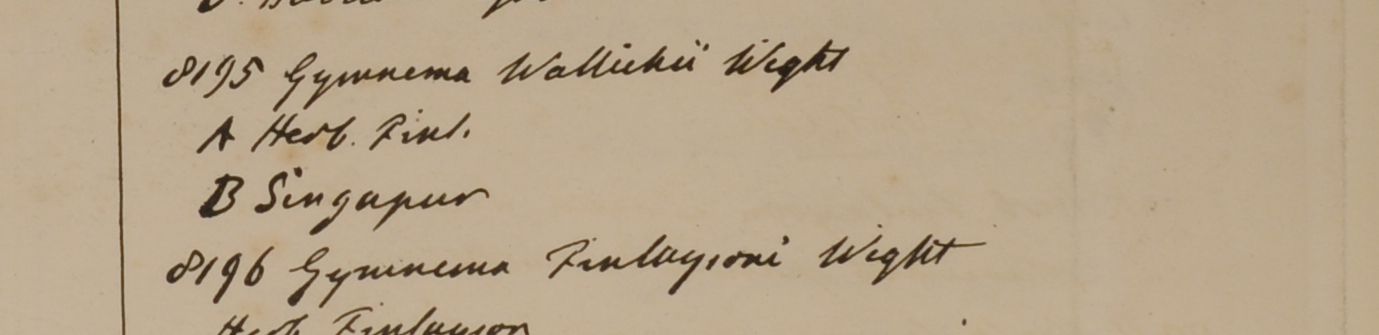 8195 Gymnema Wallichii Wight
A Herb. Finl.
B Singapur
8196 Gymnema Finlaysoni Wight
Herb. Finlayson